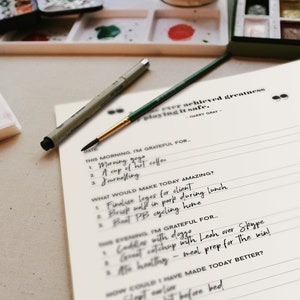 ever achieved greatness
playing it safe.
- HARRY GRAY -
DATE
THIS MORNING, I'M GRATEFUL FOR...
1. Morning yoga
2. A cup of hot coffee
3. Journalling
WHAT WOULD MAKE TODAY AMAZING?
1. Finalise logos for client
2. Brisk walk in park during lunch
3. Beat PB cycling home
THIS EVENING, I'M GRATEFUL FOR...
1. Cuddles with doggo
2. Great catchup with Leah over Skype
3. Ate healthy - meal prep for the win!
HOW COULD I HAVE MADE TODAY BETTER?
Slept earlier
before bed